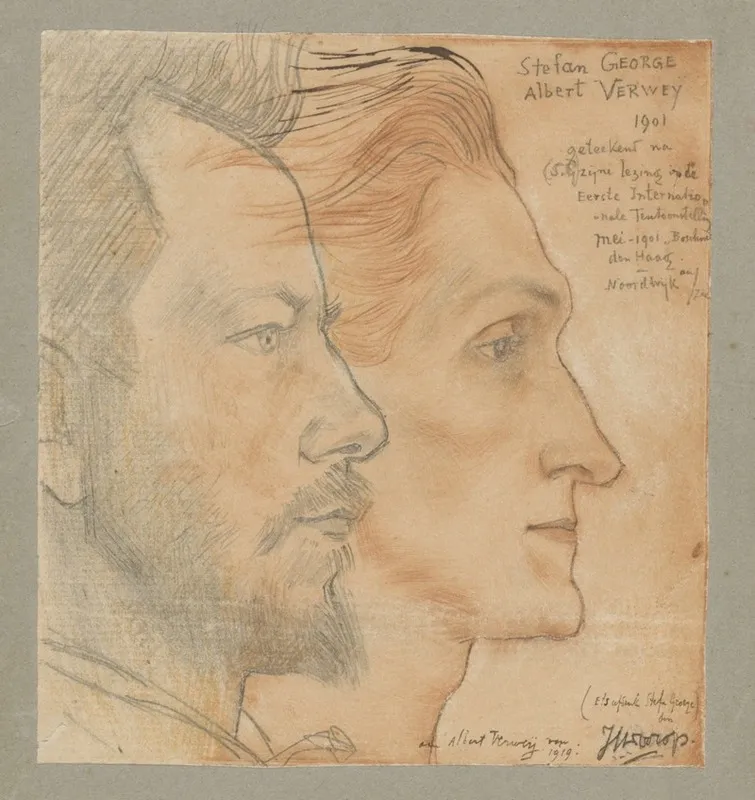 Stefan GEORGE
Albert VERWEY
1901
geteekend na
zijne lezing in de
Eerste Internatio
-nale Tentoonstelling
mei-1901
den Haag.
Noordwijk
(Ets afdruk Stefan George
Albert Verweij van
1919.
JThToorop.